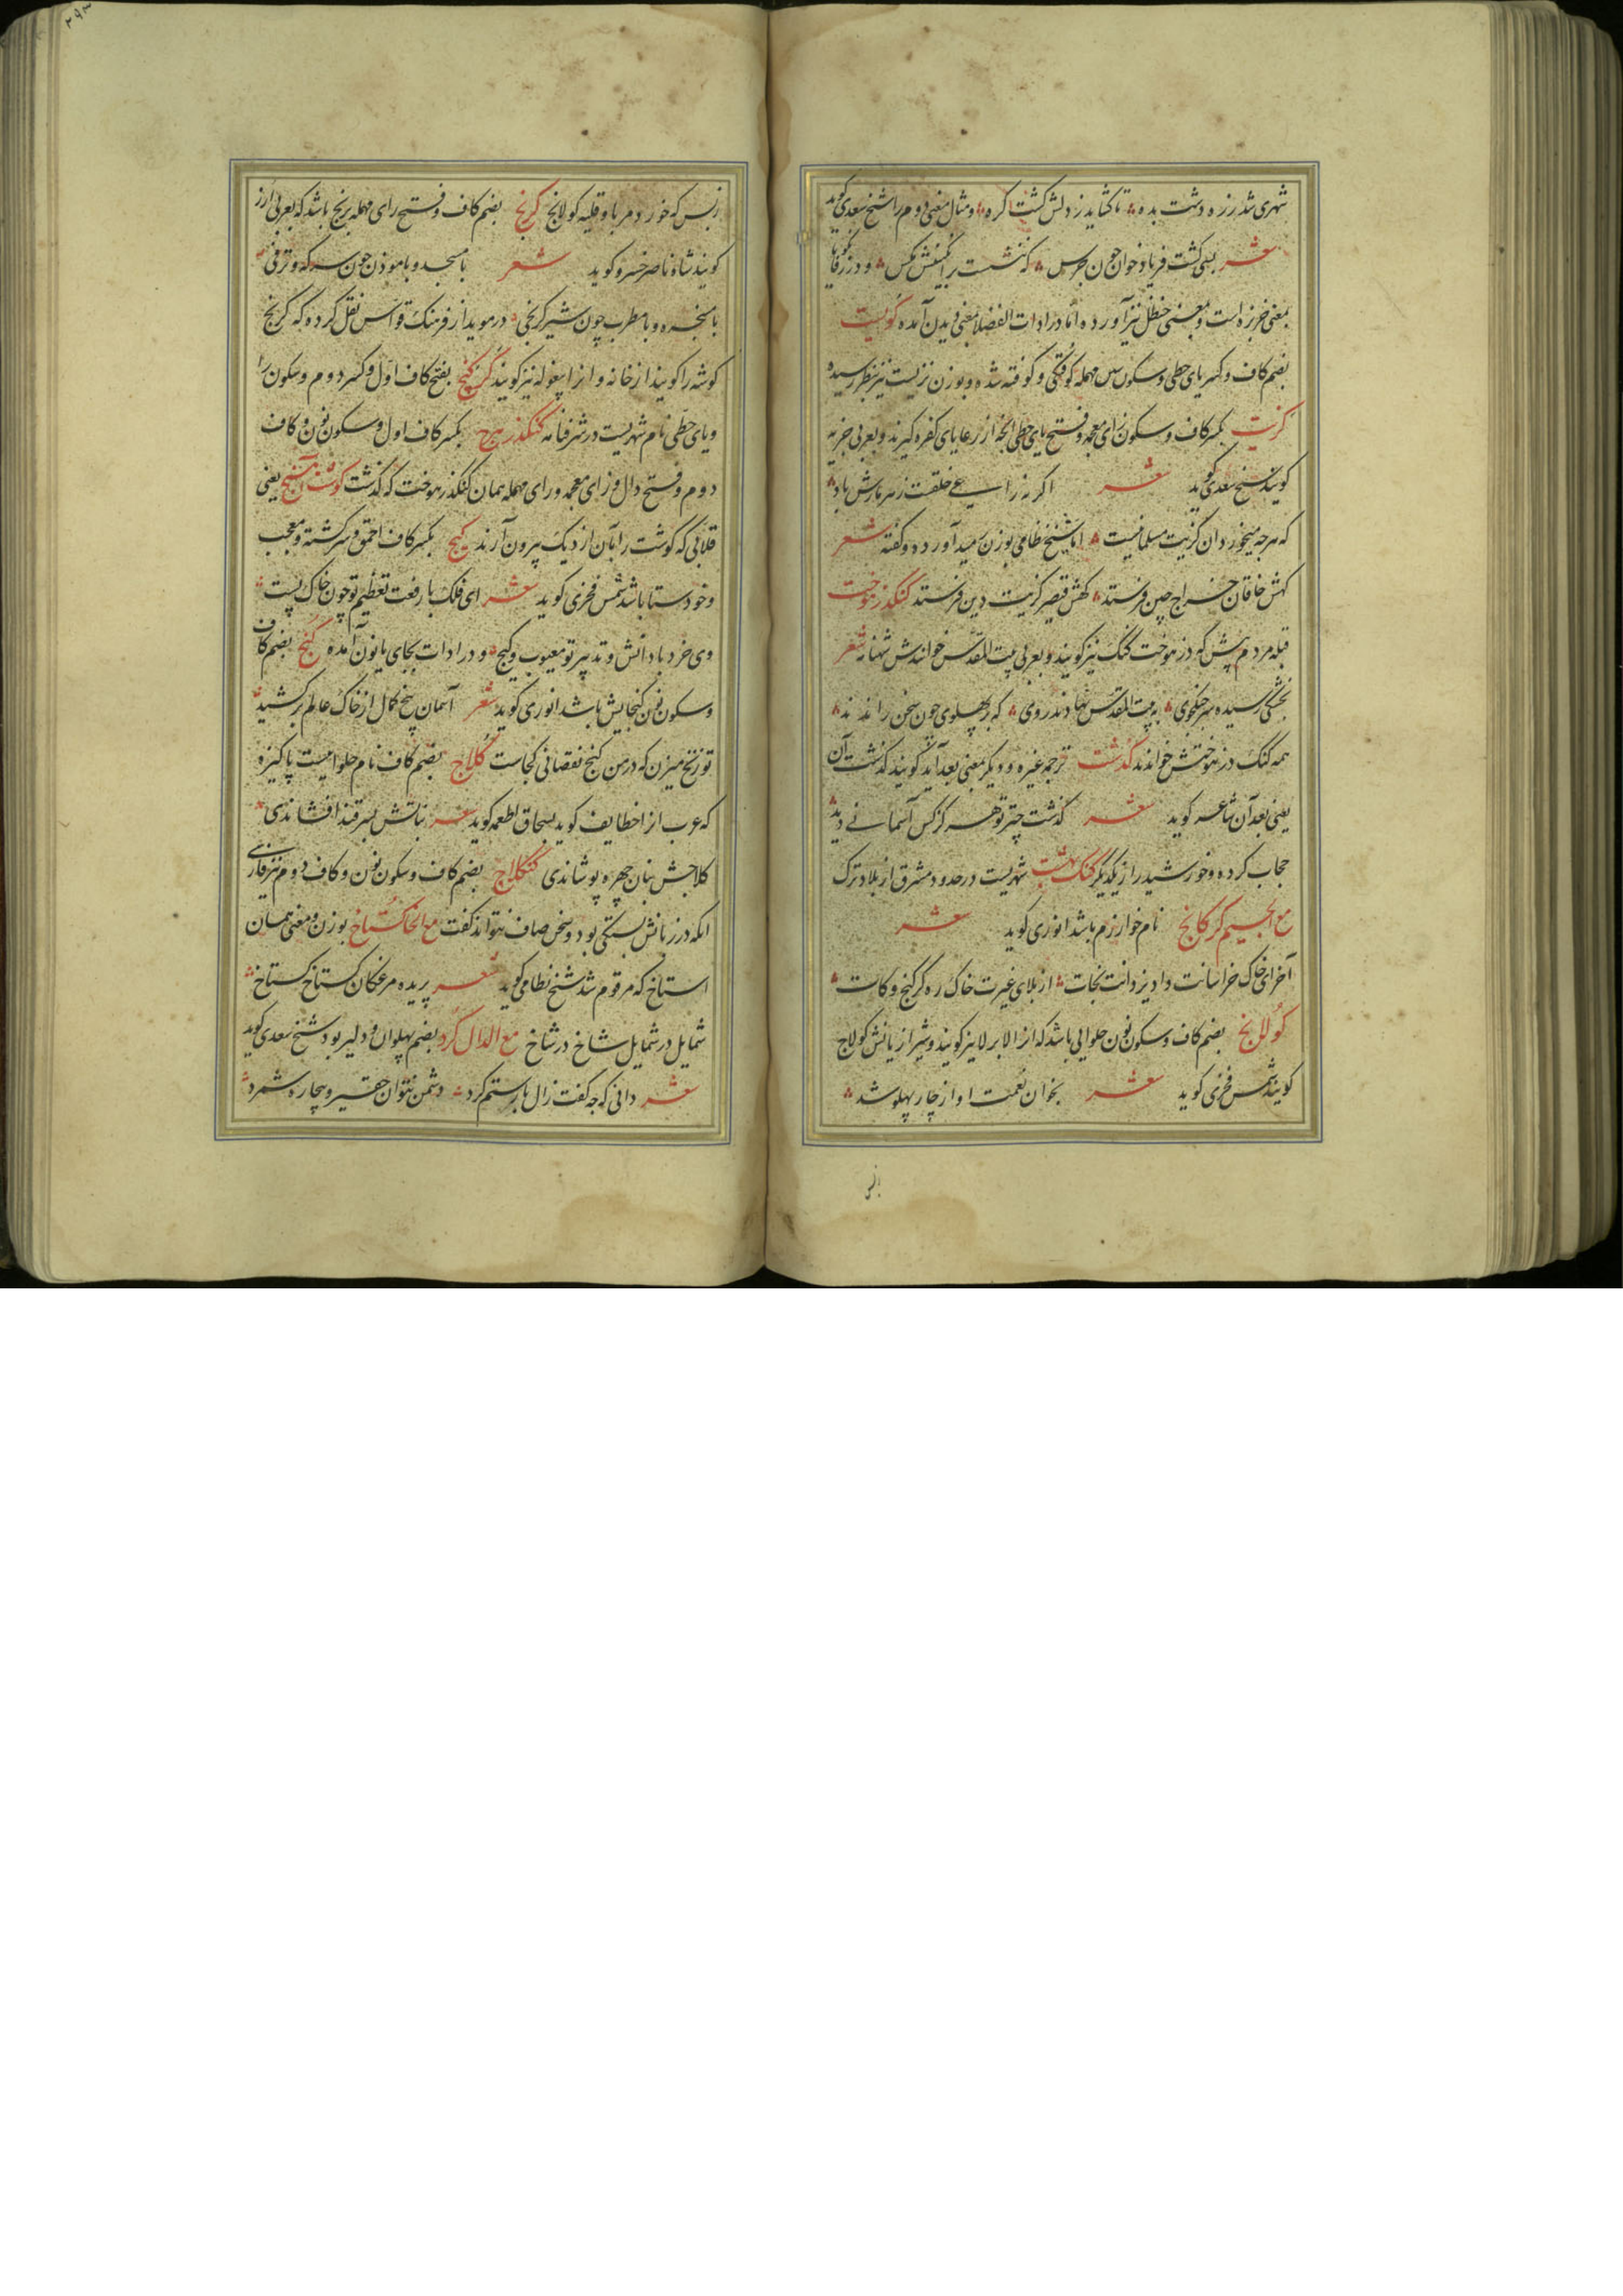 شهری شد رزه دشت بده تا کشاید ز دلش کشت کره و مثال معنی دوم را شیخ سعدی کوید
شعر بسی کشت فریاد خوان چون جرس که ننشست بر انکبینش مکس و در زفانکویا
بمعنی خربزه است و بمعنی حنظل نیز آورده اما در ادات الفضلا بمعنی دیدن آمده کویست
بضم کاف و کسر یای حطی و سکون سین مهمله کوفتکی و کوفته شده و بوزن نزیست نیز بنظر رسیده
کزیت بکسر کاف و سکون زای معجمه و فتح یای حطی انچه از رعایای کفره کیرند و بعربی جزیه
کویند شیخ سعدی کوید شعر اکر نه راعی خلقست زهر مارش باد
که هرچه میخورد آن کزیت مسلمانیست اما شیخ نظامی بوزن رسید آورده و کفته شعر
کهش خاقان خراج چین فرستد کهش قیصر کزیت دین فرستد کنکدزهوخت
قبله مردم پیش که دزهوخت کنک نیز کویند و بعربی بیت المقدس خوانندش شعر
بخشکی رسیده سر جنکجوی به بیت المقدس نهادند روی که بر پهلوی چون سخن راندند
همه کنک دزهوختش خواندند کذشت ترجمه غیره و دیکر معنی بعد آید کویند کذشت آن
یعنی بعد آن شاعر کوید شعر کذشت چتر تو هر کرکس آسمانی دید
حجاب کرده و خورشید را ز یکدیکر کنک بهشت شهریست در حدود مشرق از بلاد ترک
مع الجیم کرکانج نام خوارزم باشد انوری کوید شعر
آخر ای خاک خراسانت داد یزدانت نجات از بلای غیرت خاک ره کرکنج و کات
کولانج بضم کاف و سکون نون حلوایی باشد که انرا لابرلا نیز کویند و شیرازیانش کولاج
کویند شمس فخری کوید شعر بخوان نعمت او از چار پهلو شد
زبس
زبس که خورد مربا و قلیه کولانج کرنج بضم کاف و فتح رای مهمله برنج باشد که بعربی ارز
کویند شاه ناصر خسرو کوید شعر با مسجد و با موذن چون سرکه و ترفی
با مسخره و با مطرب چون شیر کرنجی در موید از فرهنک قواس نقل کرده که کرنج
کوشه را کویند از خانه و انرا پیغوله نیز کویند کزکنج بفتح کاف اول و کسر دوم و سکون را
و یای حطی نام شهریست در شرفنامه کنکدزهرج بکسر کاف اول و سکون نون و کاف
دوم و فتح دال و زای معجمه و رای مهمله همان کنکدزهوخت که کذشت کوشت آهنج یعنی
قلابی که کوشت را بآن از دیک بیرون آرند کیج بکسر کاف احمق و سرکشته و معجب
و خودستا باشد شمس فخری کوید شعر ای فلک با رفعت تعظیم تو چون خاک پست
وی خرد با دانش و تدبیر تو معیوب و کیج و در ادات بجای یا نون آمده کنج بضم کاف
و سکون نون کنجایش باشد انوری کوید شعر آسمان بیخ کمال از خاک عالم برکشید
تو زنخ میزن که در من کنج نقصانی کجاست کلاج بضم کاف نام حلوائیست پاکیزه
که عرب انرا خطایف کوید بسحاق اطعمه کوید شعر نباتش بسر قند افشاندی
کلاجش بنان چهره پوشاندی کنکلاج بضم کاف و سکون نون و کاف دوم نیز فارسی
انکه در زبانش بستکی بود و سخن صاف نتواند کفت مع الخا کستاخ بوزن و معنی همان
استاخ که مرقوم شد شیخ نظامی کوید شعر پریده مرغکان کستاخ کستاخ
شمایل در شمایل شاخ در شاخ مع الدال کرد بضم پهلوان و دلیر بود شیخ سعدی کوید
شعر دانی که چه کفت زال با رستم کرد دشمن نتوان حقیر و بیچاره شمرد